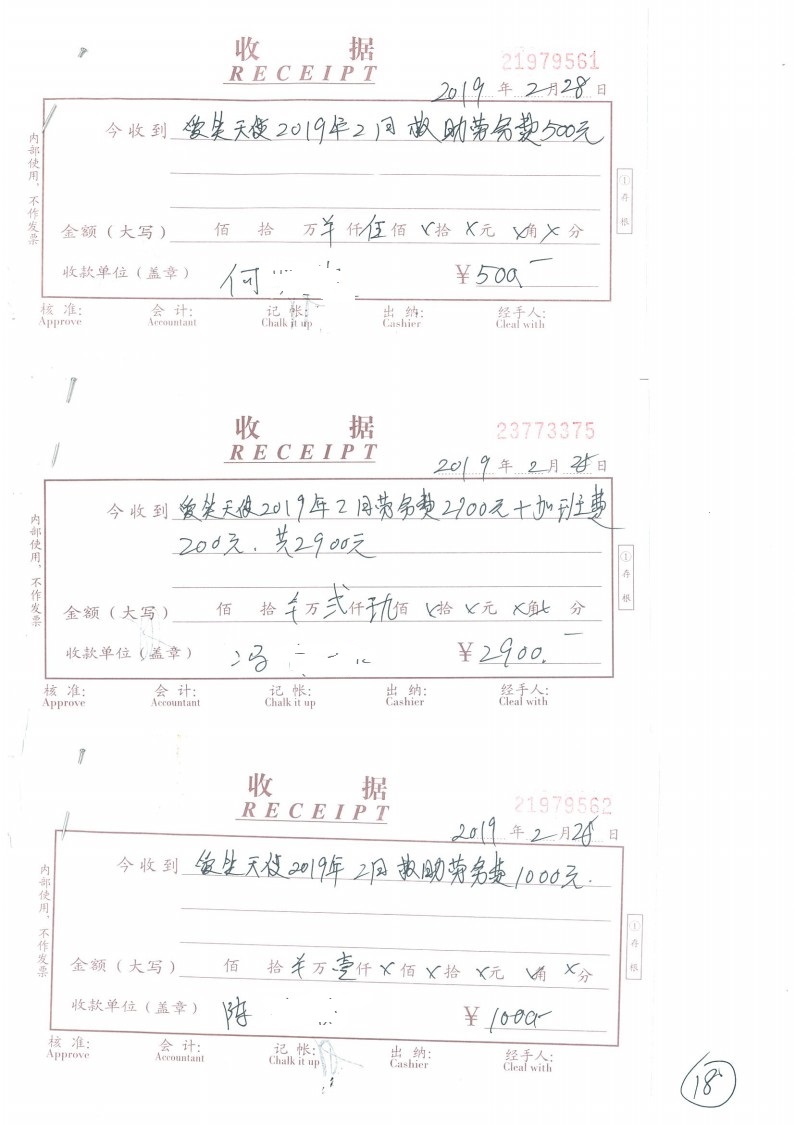 收 据
RECEIPT
21979561
2019 年 2 月 28 日
今收到 爱笑天使2019年2月救助劳务费500元
金额（大写） 佰 拾 万 羊 仟 伍 佰 x 拾 x 元 x 角 x 分
收款单位（盖章） 何 ￥500.-
内部使用、不作发票
①存根
核 准: 会 计: 记 帐: 出 纳: 经手人:
Approve Accountant Chalk it up Cashier Cleal with
收 据
RECEIPT
23773375
2019 年 2 月 28 日
今收到 爱笑天使2019年2月劳务费2700元+加班费
200元.共2900元
金额（大写） 佰 拾 羊 万 贰 仟 玖 佰 x 拾 x 元 x 角 x 分
收款单位（盖章） 冯 ￥2900.-
内部使用、不作发票
①存根
核 准: 会 计: 记 帐: 出 纳: 经手人:
Approve Accountant Chalk it up Cashier Cleal with
收 据
RECEIPT
21979562
2019 年 2 月 28 日
今收到 爱笑天使2019年2月救助劳务费1000元.
金额（大写） 佰 拾 羊 万 壹 仟 x 佰 x 拾 x 元 x 角 x 分
收款单位（盖章） 陈 ￥1000-
内部使用、不作发票
①存根
核 准: 会 计: 记 帐: 出 纳: 经手人:
Approve Accountant Chalk it up Cashier Cleal with
18